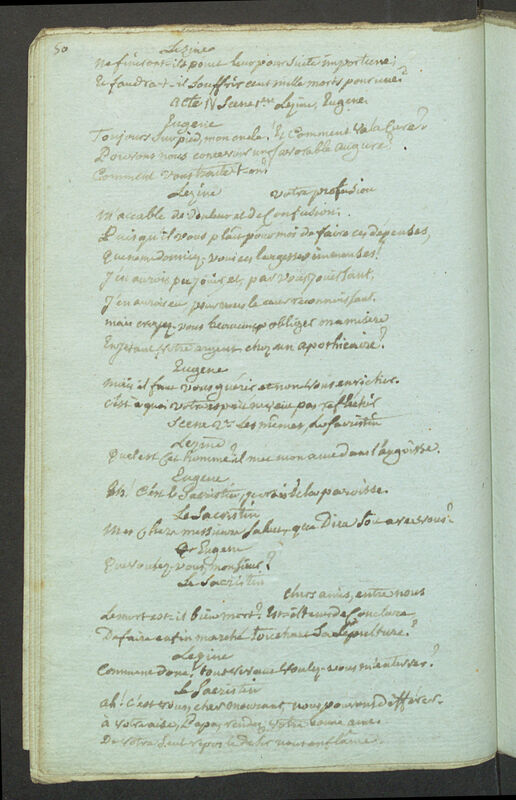 50
Lezine
ne finiront-ils point leur poursuite importune;
Et faudra-t-il souffrir cent mille morts pour une?
acte IV Scene 1ere Lezine, Eugene
Eugene
Toujours sur pied, mon oncle! Et comment va la Cure?
Pouvons nous concevoir un favorable augure?
Comment vous traite-t-on?
Lezine
votre profusion
m'accable de douleur et de confusion.
Puisqu'il vous plait pour moi de faire ces dépenses,
Que ne me donniez-vous ces largesses immenses!
J'en aurois pu jouir et, par vous jouissant,
J'en aurois eu pour vous le coeur reconnaissant.
mais croyez-vous beaucoup obliger ma misere
En jetant votre argent chez un apothicaire?
Eugene
mais il faut vous guérir et non vous enrichir.
c'est à quoi votre esprit ne veut pas réfléchir
Scene 2e Les mêmes, Le Sacristin
Lezine
Quel est cet homme? il met mon ame dans l'angoisse.
Eugene
Ah! C'est le Sacristin, je crois de la paroisse.
Le Sacristin
Mes chers messieurs salut, que Dieu soit avec vous!
Eugene
Que voulez-vous, monsieur?
Le Sacristin
chers amis, entre nous
Le mort est-il bien mort? Est-il de conclure
De faire enfin marché touchant sa sépulture?
Lezine
Comment donc, tout vivant voulez-vous m'enterrer?
Le Sacristin
ah! c'est vous, cher mourant, nous pouvons differer.
à votre aise, Papa, rendez votre bonne ame
De votre seul repos le desir nous enflâme.